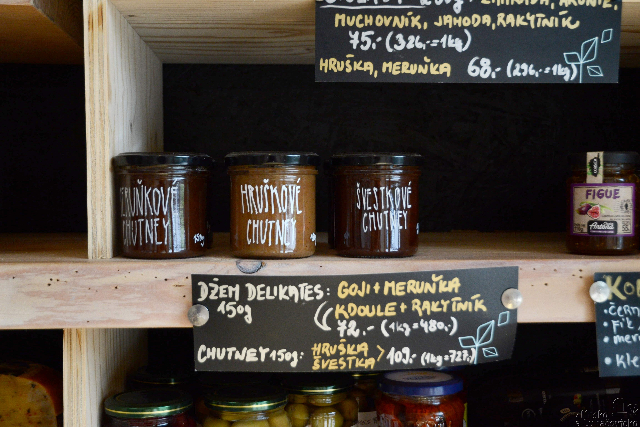 MUCHOVNÍK, JAHODA, RAKYTNÍK
75,- (326,-=1kg)
HRUŠKA, MERUŇKA 68,- (296,-=1kg)
MERUŇKOVÉ
CHUTNEY
150g
HRUŠKOVÉ
CHUTNEY
ŠVESTKOVÉ
CHUTNEY
FIGUE
DŽEM DELIKATES: GOJI + MERUŇKA
150g KDOULE + RAKYTNÍK
72,- (1kg=480,-)
CHUTNEY 150g: HRUŠKA
ŠVESTKA > 109,- (1kg=727,-)